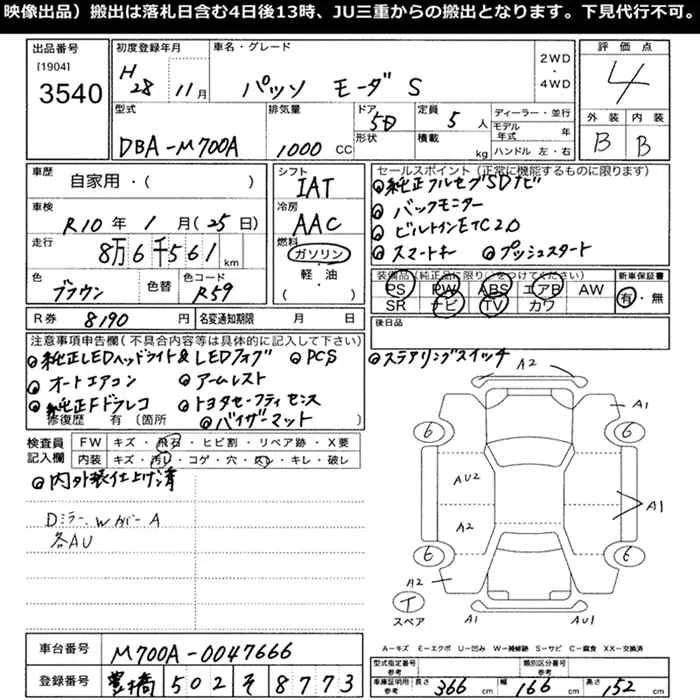 映像出品）搬出は落札日含む4日後13時、JU三重からの搬出となります。下見代行不可。
出品番号 [1904] 3540
初度登録年月 H28 11月
車名・グレード パッソ モーダS
2WD・4WD
評価点 4
外装 B 内装 B
型式 DBA-M700A
排気量 1000 CC
ドア形状 5D
定員 5 人
積載 kg
ディーラー・並行
モデル年式 年
ハンドル 左・右
車歴 自家用・( )
車検 R10年1月(25日)
走行 8万6千561 km
色 ブラウン 色替 色コード R59
シフト IAT
冷房 AAC
燃料 ガソリン・軽・油 ( )
セールスポイント (正常に機能するものに限ります)
純正フルセグSDナビ
バックモニター
ビルトインETC2.0
スマートキー プッシュスタート
装備品(純正品に限り)をつけてください 新車保証書
PS PW ABS エアB AW 有・無
SR ナビ TV カワ
後日品
R券 8190 円 名変通知期限 月 日
注意事項申告欄(不具合内容等は具体的に記入して下さい)
純正LEDヘッドライト& LEDフォグ PCS ステアリングスイッチ
オートエアコン アームレスト
純正Fドラレコ トヨタセーフティセンス
修復歴 有 〔箇所 バイザーマット
検査員記入欄
FW キズ・飛石・ヒビ割・リペア跡・X要
内装 キズ・汚レ・コゲ・穴・スレ・キレ・破レ
内外装仕上げ済
Dミラー、Wカバー A
各AU
A2
A1
6 6
AU2
A2
A1
6 6
A2
A1 AU1
T
スペア
A－キズ E－エクボ U－凹み W－補修跡 S－サビ C－腐食 XX－交換済
車台番号 M700A-0047666
登録番号 豊橋 502 そ 8773
型式指定番号 参考 類別区分番号 参考
車庫証明用参考 長さ 366 cm 幅 166 cm 高さ 152 cm